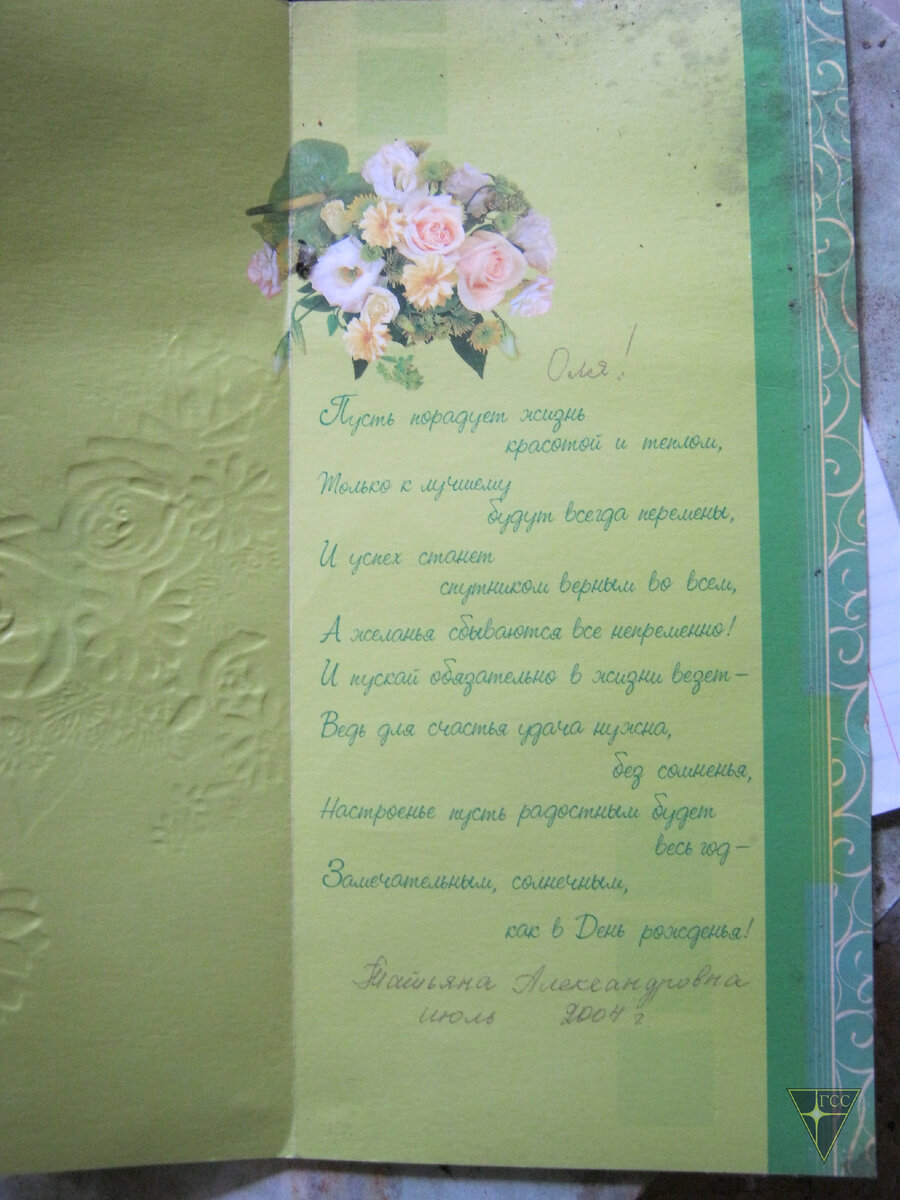 Оля!
Пусть порадует жизнь
красотой и теплом,
Только к лучшему
будут всегда перемены,
И успех станет
спутником верным во всем,
А желанья сбываются все непременно!
И пускай обязательно в жизни везет –
Ведь для счастья удача нужна,
без сомненья,
Настроенье пусть радостным будет
весь год –
Замечательным, солнечным,
как в День рожденья!
Татьяна Александровна
июль 2004 г
ГСС